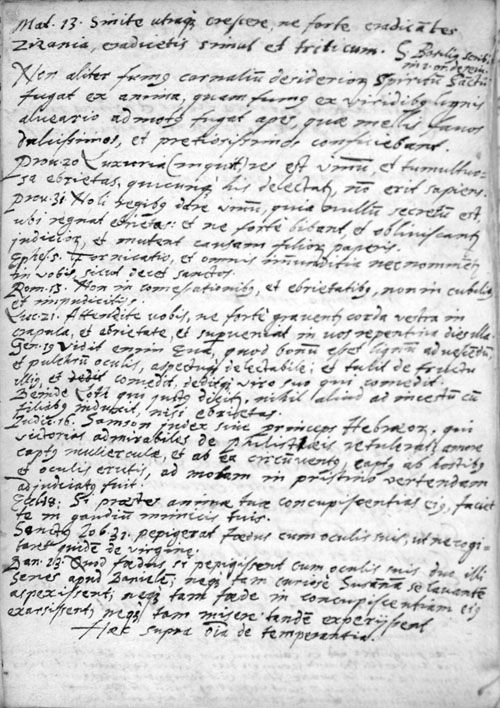 Mat. 13. Sinite utraq; crescere, ne forte eradicātes
Zizania, eradicetis simul et triticum. S. Basilig scrib.
Non aliter fumg carnaliū desiderior, Spiritū Sāctū
fugat ex anima, quam fumg ex viridibg lignis
alueario admotg fugat apes, quæ mellis fauos
dulcissimos, et pretiosissimos conficiebant.
Prou. 20 Luxuria (inquit) res est vinū, et tumultuo-
sa ebrietas, quicunq; his delectat, nō erit sapiens.
Prou. 31 Noli regibg dare vinū, quia nullū secretū est,
ubi regnat ebrietas: et ne forte bibant, et obliviscant
iudicior, et mutent causam filior, paperis.
Ephes. 5. Fornicatio, et omnis immūditia nec nominet
in vobis, sicut decet sanctos.
Rom. 13. Non in comessationibg, et ebrietatibg, non in cubilibg
et impudicitijs.
Luc. 21. Attendite vobis, ne forte grauent corda vestra in
crapula, et ebrietate, et superueniat in vos repentina dies illa.
Gen. Vidit enim Eua, quod bonū esset lignū ad vescēdū
et pulchrū oculis, aspectuq; delectabile; et tulit de fructu
illig, et comedit, deditq; viro suo qui comedit.
Deinde Loth qui justg dicit, nihil aliud ad incestū cū
filiabg induxit, nisi ebrietas.
Judic. 16. Samson judex siue princeps Hebræor, qui
victorias admirabiles de philistæis retulerat, amore
captg mulierculæ, et ab ea circūuentg, captg ab hostibg
et oculis erutis, ad molam in pristino vertendam
adjudicatg fuit.
Eccl. 18. Si præstes animæ tuæ concupiscentias eig, faciet
te in gaudiū inimicis tuis.
Sanctg Job. 31. pepigerat fœdus cum oculis suis, ut ne cogi-
taret quidē de virgine.
Dan. 13. Quod fœdus si pepigissent cum oculis suis duo illi
Senes apud Danielē; neq; tam curiose Susannā se lauante
aspexissent, neq; tam fœde in concupiscentiam eig
exarsissent, neq; tam misere tandē experissent.
Hæc supra oīa de temperantia.